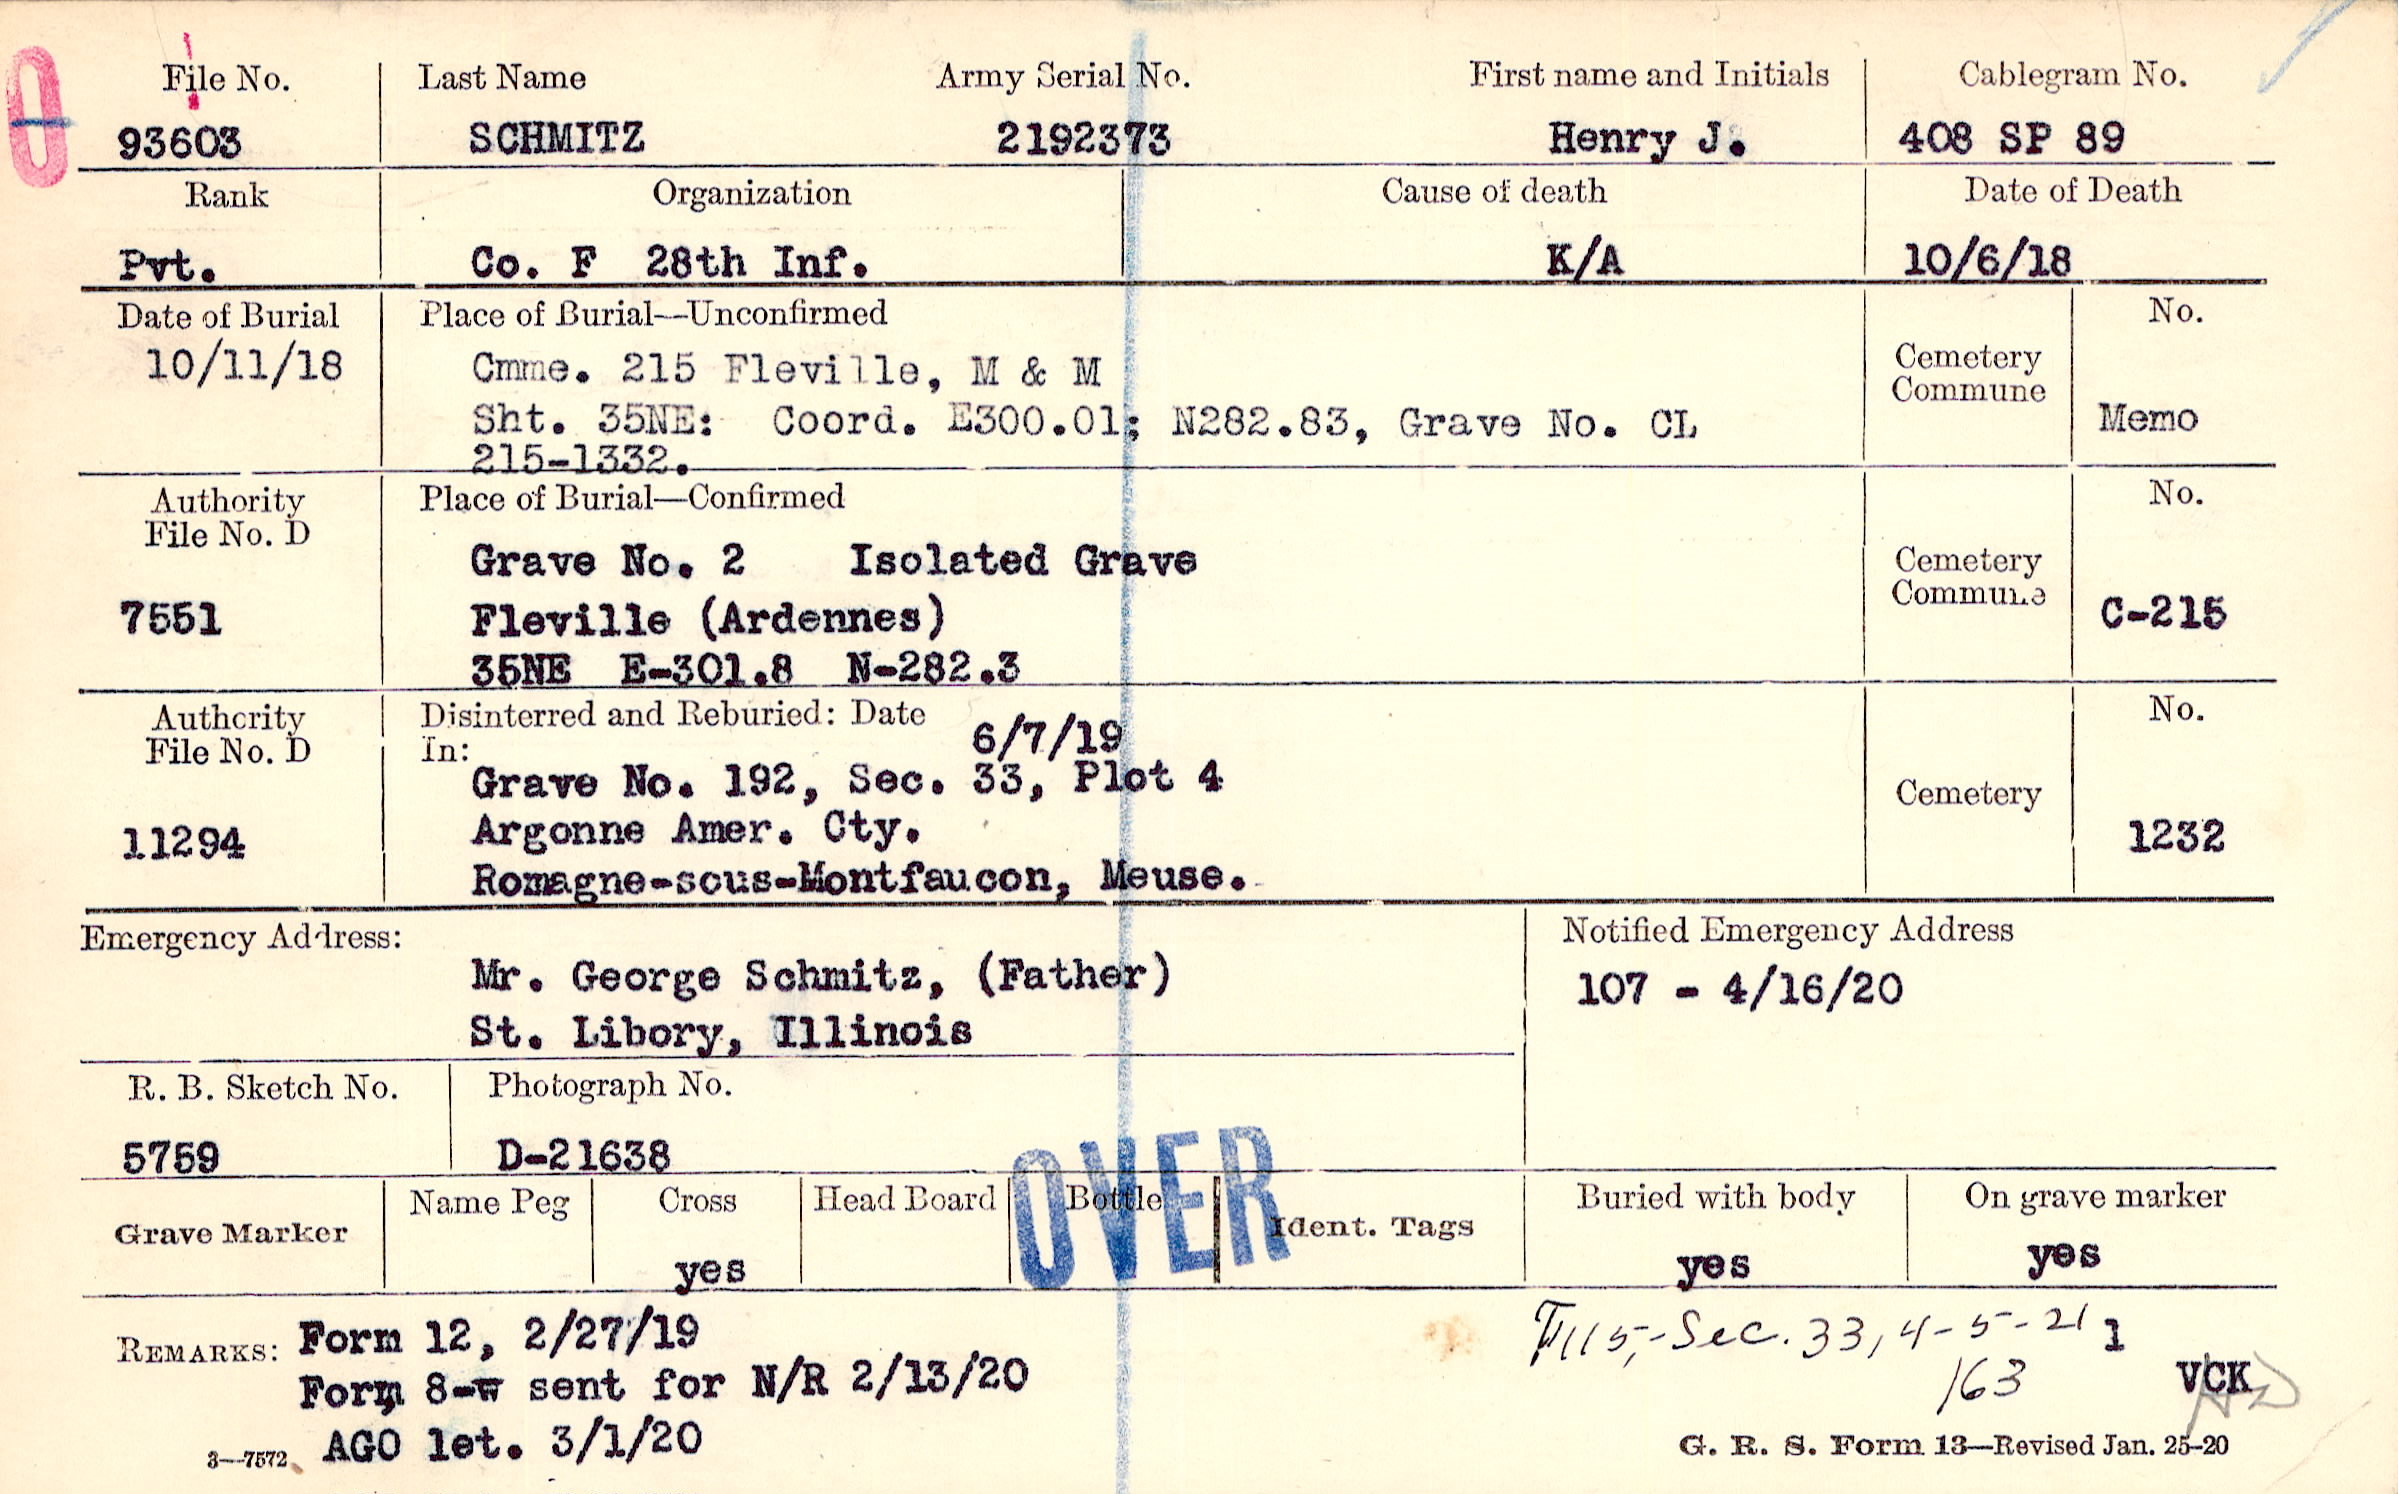 O
File No. Last Name Army Serial No. First name and Initials Cablegram No.
93603 SCHMITZ 2192373 Henry J. 408 SP 89
Rank Organization Cause of death Date of Death
Pvt. Co. F 28th Inf. K/A 10/6/18
Date of Burial Place of Burial—Unconfirmed No.
10/11/18 Cmme. 215 Fleville, M & M Cemetery
Commune
Sht. 35NE: Coord. E300.01; N282.83, Grave No. CL Memo
215-1332.
Authority Place of Burial—Confirmed No.
File No. D
Grave No. 2 Isolated Grave Cemetery
Commune
7551 Fleville (Ardennes) C-215
35NE E-301.8 N-282.3
Authority Disinterred and Reburied: Date 6/7/19 No.
File No. D In:
Grave No. 192, Sec. 33, Plot 4 Cemetery
11294 Argonne Amer. Cty. 1232
Romagne-sous-Montfaucon, Meuse.
Emergency Address: Notified Emergency Address
Mr. George Schmitz, (Father) 107 - 4/16/20
St. Libory, Illinois
R. B. Sketch No. Photograph No.
5759 D-21638
OVER
Grave Marker Name Peg Cross Head Board Bottle Ident. Tags Buried with body On grave marker
yes yes yes
REMARKS: Form 12, 2/27/19
Form 8-W sent for N/R 2/13/20
AGO let. 3/1/20
Sec. 33, 4-5-21 1
163 VCK
3—7572 G. R. S. Form 13—Revised Jan. 25-20